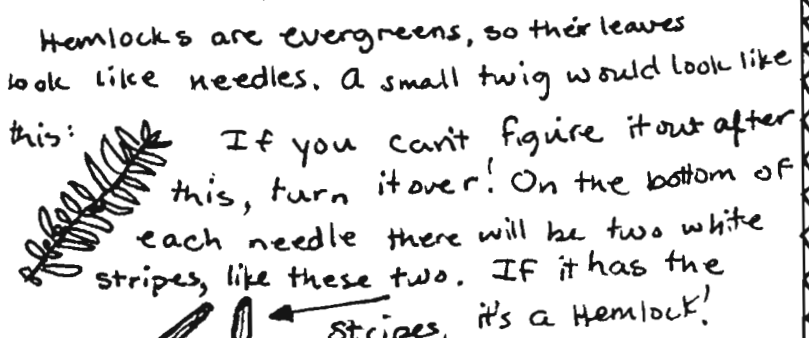 Hemlocks are evergreens, so their leaves
look like needles. A small twig would look like
this:
If you can't figure it out after
this, turn it over! On the bottom of
each needle there will be two white
stripes, like these two. If it has the
stripes, it's a Hemlock!